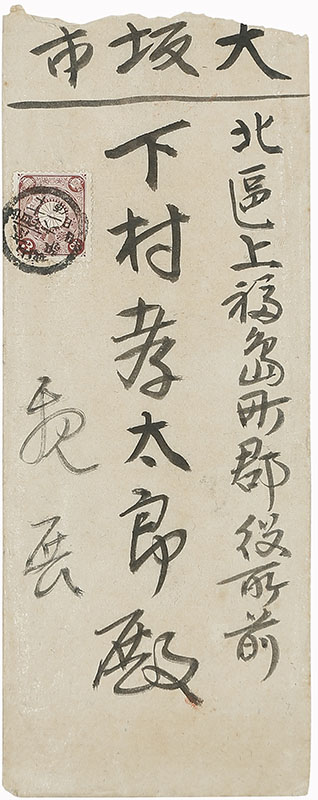 大坂市
北區上福島町郡役所前
下村孝太郎殿
親展